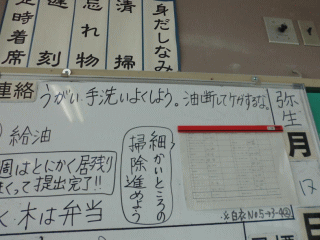 身だしなみ
清掃
忘れ物
遅刻
定時着席
連絡
うがい 手洗いよくしよう。油断してケガするな。
弥生
月
給油
細かいところの
掃除進めよう
週はとにかく居残り
なくって提出完了!!
木は弁当